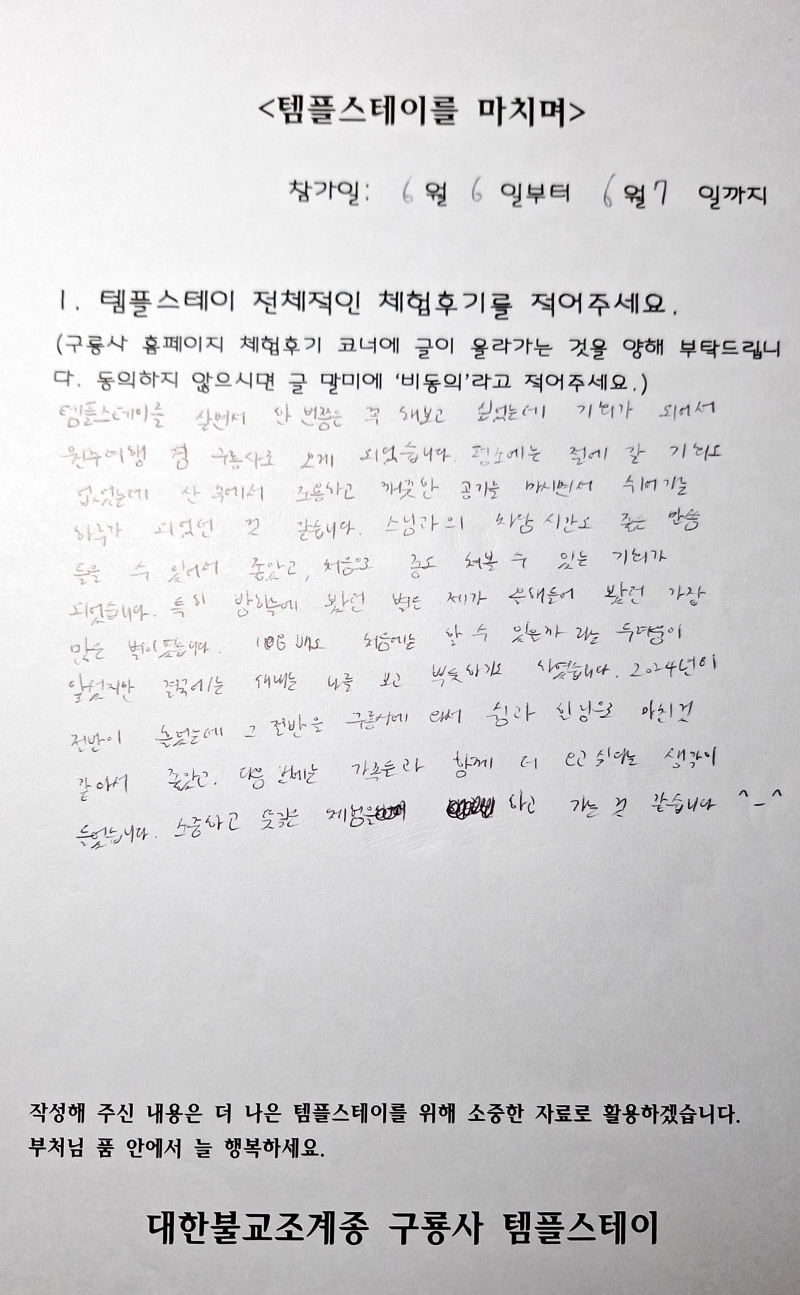 <템플스테이를 마치며>
참가일: 6월 6일부터 6월 7일까지
1. 템플스테이 전체적인 체험후기를 적어주세요.
(구룡사 홈페이지 체험후기 코너에 글이 올라가는 것을 양해 부탁드립니
다. 동의하지 않으시면 글 말미에 '비동의'라고 적어주세요.)
템플스테이를 살면서 한 번쯤은 꼭 해보고 싶었는데 기회가 되어서
원주여행 겸 구룡사로 오게 되었습니다. 평소에는 절에 갈 기회도
없었는데 산 속에서 조용하고 깨끗한 공기를 마시면서 쉬어가는
하루가 되었던 것 같습니다. 스님과의 차담 시간도 좋은 말씀
들을 수 있어서 좋았고, 처음으로 종도 쳐볼 수 있는 기회가
되었습니다. 특히 밤하늘에 봤던 별은 제가 봤던 가장
많은 별이었습니다. 108배도 처음에는 할 수 있을까 라는 두려움이
앞섰지만 결국에는 해내는 나를 보고 뿌듯하기도 하였습니다. 2024년이
절반이 흘렀는데 그 절반을 구룡사에 와서 쉼과 힐링으로 마친 것
같아서 좋았고, 다음 번에는 가족들과 함께 더 오고 싶다는 생각이
들었습니다. 소중하고 뜻깊은 체험을 하고 가는 것 같습니다 ^-^
작성해 주신 내용은 더 나은 템플스테이를 위해 소중한 자료로 활용하겠습니다.
부처님 품 안에서 늘 행복하세요.
대한불교조계종 구룡사 템플스테이